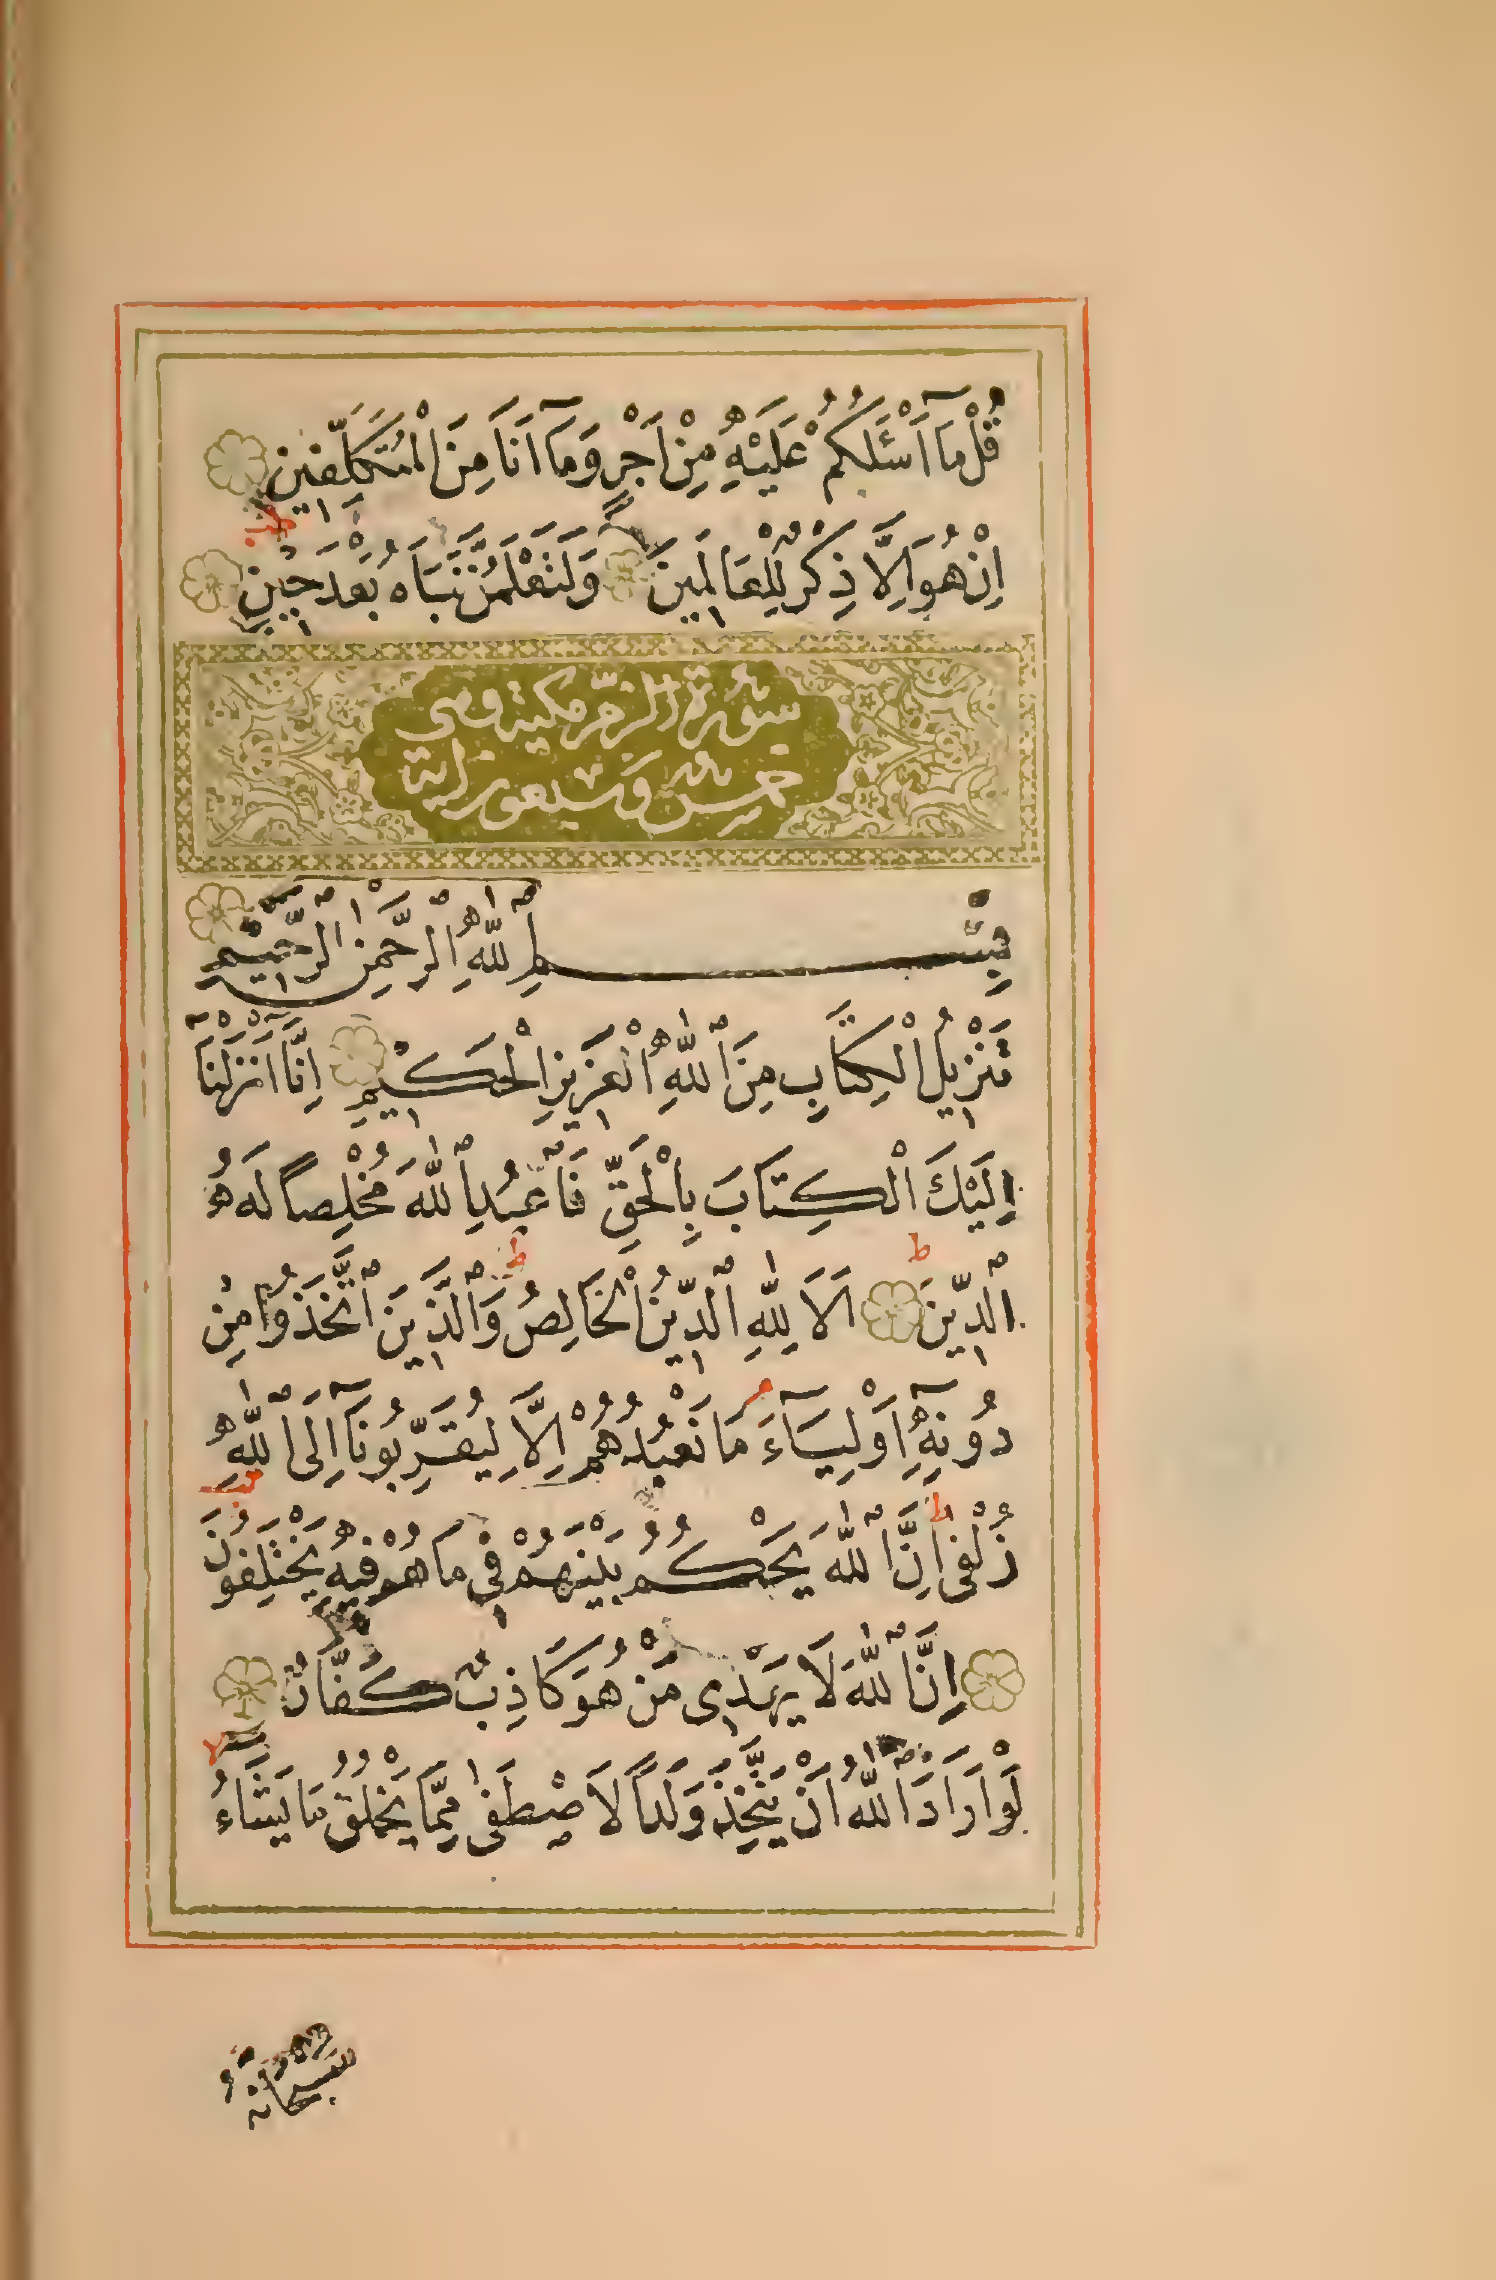 قُلْ مَٓا اَسْـَٔلُكُمْ عَلَيْهِ مِنْ اَجْرٍ وَمَٓا اَنَا۬ مِنَ الْمُتَكَلِّفٖينَ
اِنْ هُوَ اِلَّا ذِكْرٌ لِلْعَالَمٖينَ وَلَتَعْلَمُنَّ نَبَاَهُ بَعْدَ حٖينٍ
سورة الزمر مكية وهي
خمس وسبعون اية
بِسْمِ اللّٰهِ الرَّحْمٰنِ الرَّحٖيمِ
تَنْزٖيلُ الْكِتَابِ مِنَ اللّٰهِ الْعَزٖيزِ الْحَكٖيمِ اِنَّٓا اَنْزَلْنَٓا
اِلَيْكَ الْكِتَابَ بِالْحَقِّ فَاعْبُدِ اللّٰهَ مُخْلِصاً لَهُ
الدّٖينَ اَلَا لِلّٰهِ الدّٖينُ الْخَالِصُ وَالَّذٖينَ اتَّخَذُوا مِنْ
دُونِهٖٓ اَوْلِيَٓاءَ مَا نَعْبُدُهُمْ اِلَّا لِيُقَرِّبُونَٓا اِلَى اللّٰهِ
زُلْفٰى اِنَّ اللّٰهَ يَحْكُمُ بَيْنَهُمْ فٖى مَا هُمْ فٖيهِ يَخْتَلِفُونَ
اِنَّ اللّٰهَ لَا يَهْدٖى مَنْ هُوَ كَاذِبٌ كَفَّارٌ
لَوْ اَرَادَ اللّٰهُ اَنْ يَتَّخِذَ وَلَداً لَاصْطَفٰى مِمَّا يَخْلُقُ مَا يَشَٓاءُ
سُبْحَانَهُ